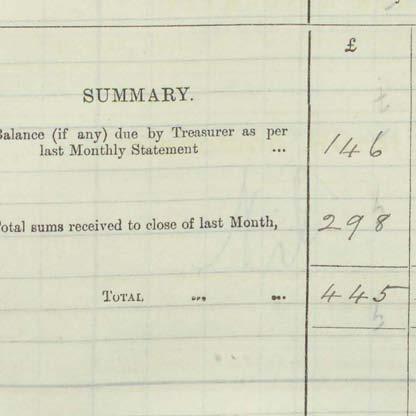 £
SUMMARY.
Balance (if any) due by Treasurer as per
last Monthly Statement ... 146
Total sums received to close of last Month, 298
TOTAL ... ... 445